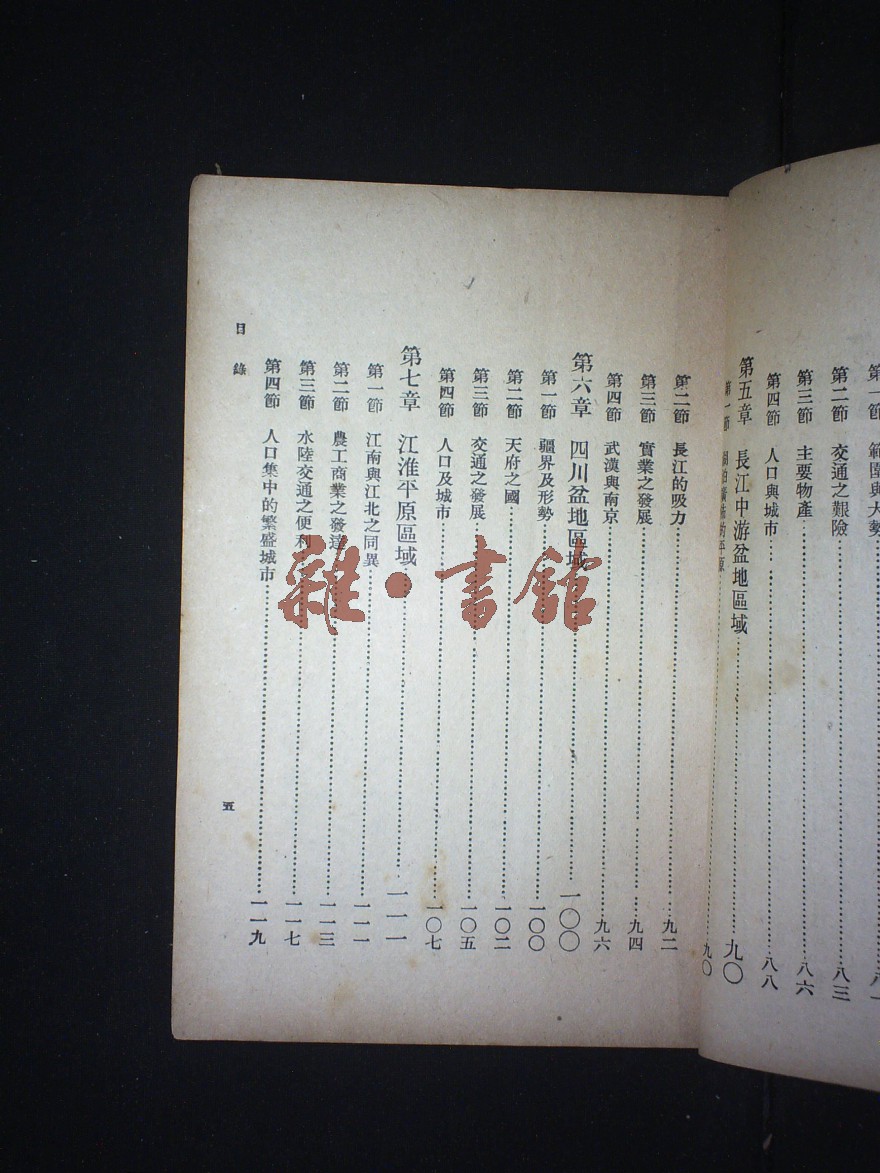 第一節 範圍與大勢
第二節 交通之艱險……八三
第三節 主要物產……八六
第四節 人口與城市……八八
第五章 長江中游盆地區域……九〇
第一節 的平原……九〇
第二節 長江的吸力……九二
第三節 實業之發展……九四
第四節 武漢與南京……九六
第六章 四川盆地區域……一〇〇
第一節 疆界及形勢……一〇〇
第二節 天府之國……一〇二
第三節 交通之發展……一〇五
第四節 人口及城市……一〇七
第七章 江淮平原區域……一一一
第一節 江南與江北之同異……一一一
第二節 農工商業之發達……一一三
第三節 水陸交通之便利……一一七
第四節 人口集中的繁盛城市……一一九
目錄
五
雜·書館